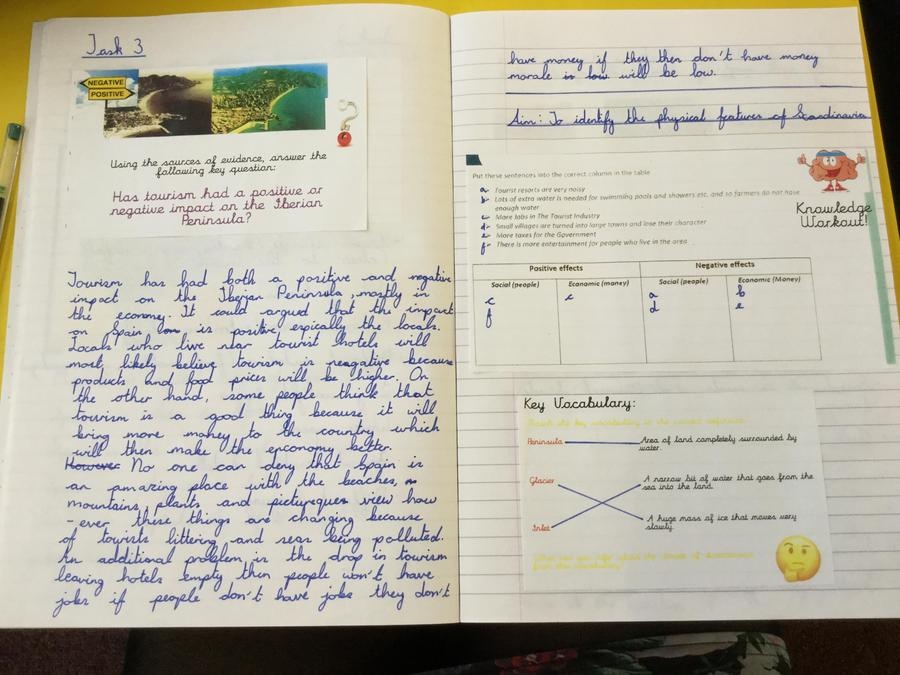 Task 3
NEGATIVE
POSITIVE
Using the sources of evidence, answer the
following key question:
Has tourism had a positive or
negative impact on the Iberian
Peninsula?
Tourism has had both a positive and negative
impact on the Iberian Peninsula, mostly in
the econemy. It could argued that the impact
on Spain is positive espically the locals.
Locals who live near tourist hotels will
most likely believe tourism is neagative because
products and food prices will be higher. On
the other hand, some people think that
tourism is a good thing because it will
bring more money to the country which
will then make the enconemy better.
However No one can deny that Spain is
an amazing place with the beaches,
mountains, plants and pictureques view how
-ever these things are changing because
of tourists littering and seas being polluted.
An additional problem is the drop in tourism
leaving hotels empty then people won't have
jobs if people don't have jobs they don't
have money if they then don't have money
morale is low will be low.
Aim: To identify the physical features of Scandinavia
Put these sentences into the correct column in the table
a. Tourist resorts are very noisy
b. Lots of extra water is needed for swimming pools and showers etc. and so farmers do not have
enough water
c. More Jobs in The Tourist Industry
d. Small villages are turned into large towns and lose their character
e. More taxes for the Government
f. There is more entertainment for people who live in the area
Knowledge
Workout!
Positive effects Negative effects
Social (people) Economic (money) Social (people) Economic (Money)
c c a b
f d e
Key Vocabulary:
Peninsula Area of land completely surrounded by
water.
Glacier A narrow bit of water that goes from the
sea into the land.
Inlet A huge mass of ice that moves very
slowly.